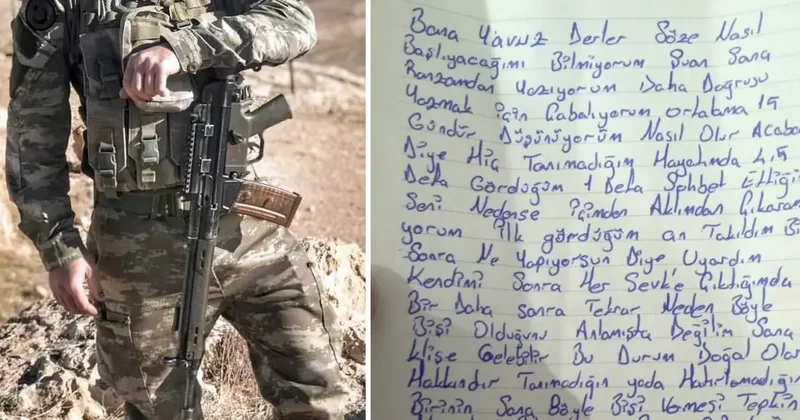 Bana Yavuz Derler Söze Nasıl
Başlıyacağımı Bilmiyorum Şuan Sana
Ranzamdan Yazıyorum Daha Doğrusu
Yazmak için Çabalıyorum ortalama 15
Gündür Düşünüyorum Nasıl Olur Acaba
Diye Hiç Tanımadığım Hayatımda 4,5
Defa Gördüğüm 1 Defa Sohbet Ettiğim
Seni Nedense içimden Aklımdan Çıkaram
yorum ilk gördüğüm an Takıldım
Sonra Ne Yapıyorsun Diye Uyardım
Kendimi Sonra Her Sevk'e Çıktığımda
Bir Daha sonra Tekrar Neden Böyle
Bişi Olduğunu Anlamışta Değilim Sana
Klişe Gelebilir Bu Durum Doğal Olar
Hakkındır Tanımadığın yada Hatırlamadığı
Birinin Sana Böyle Bişi Vermesi Tepkin